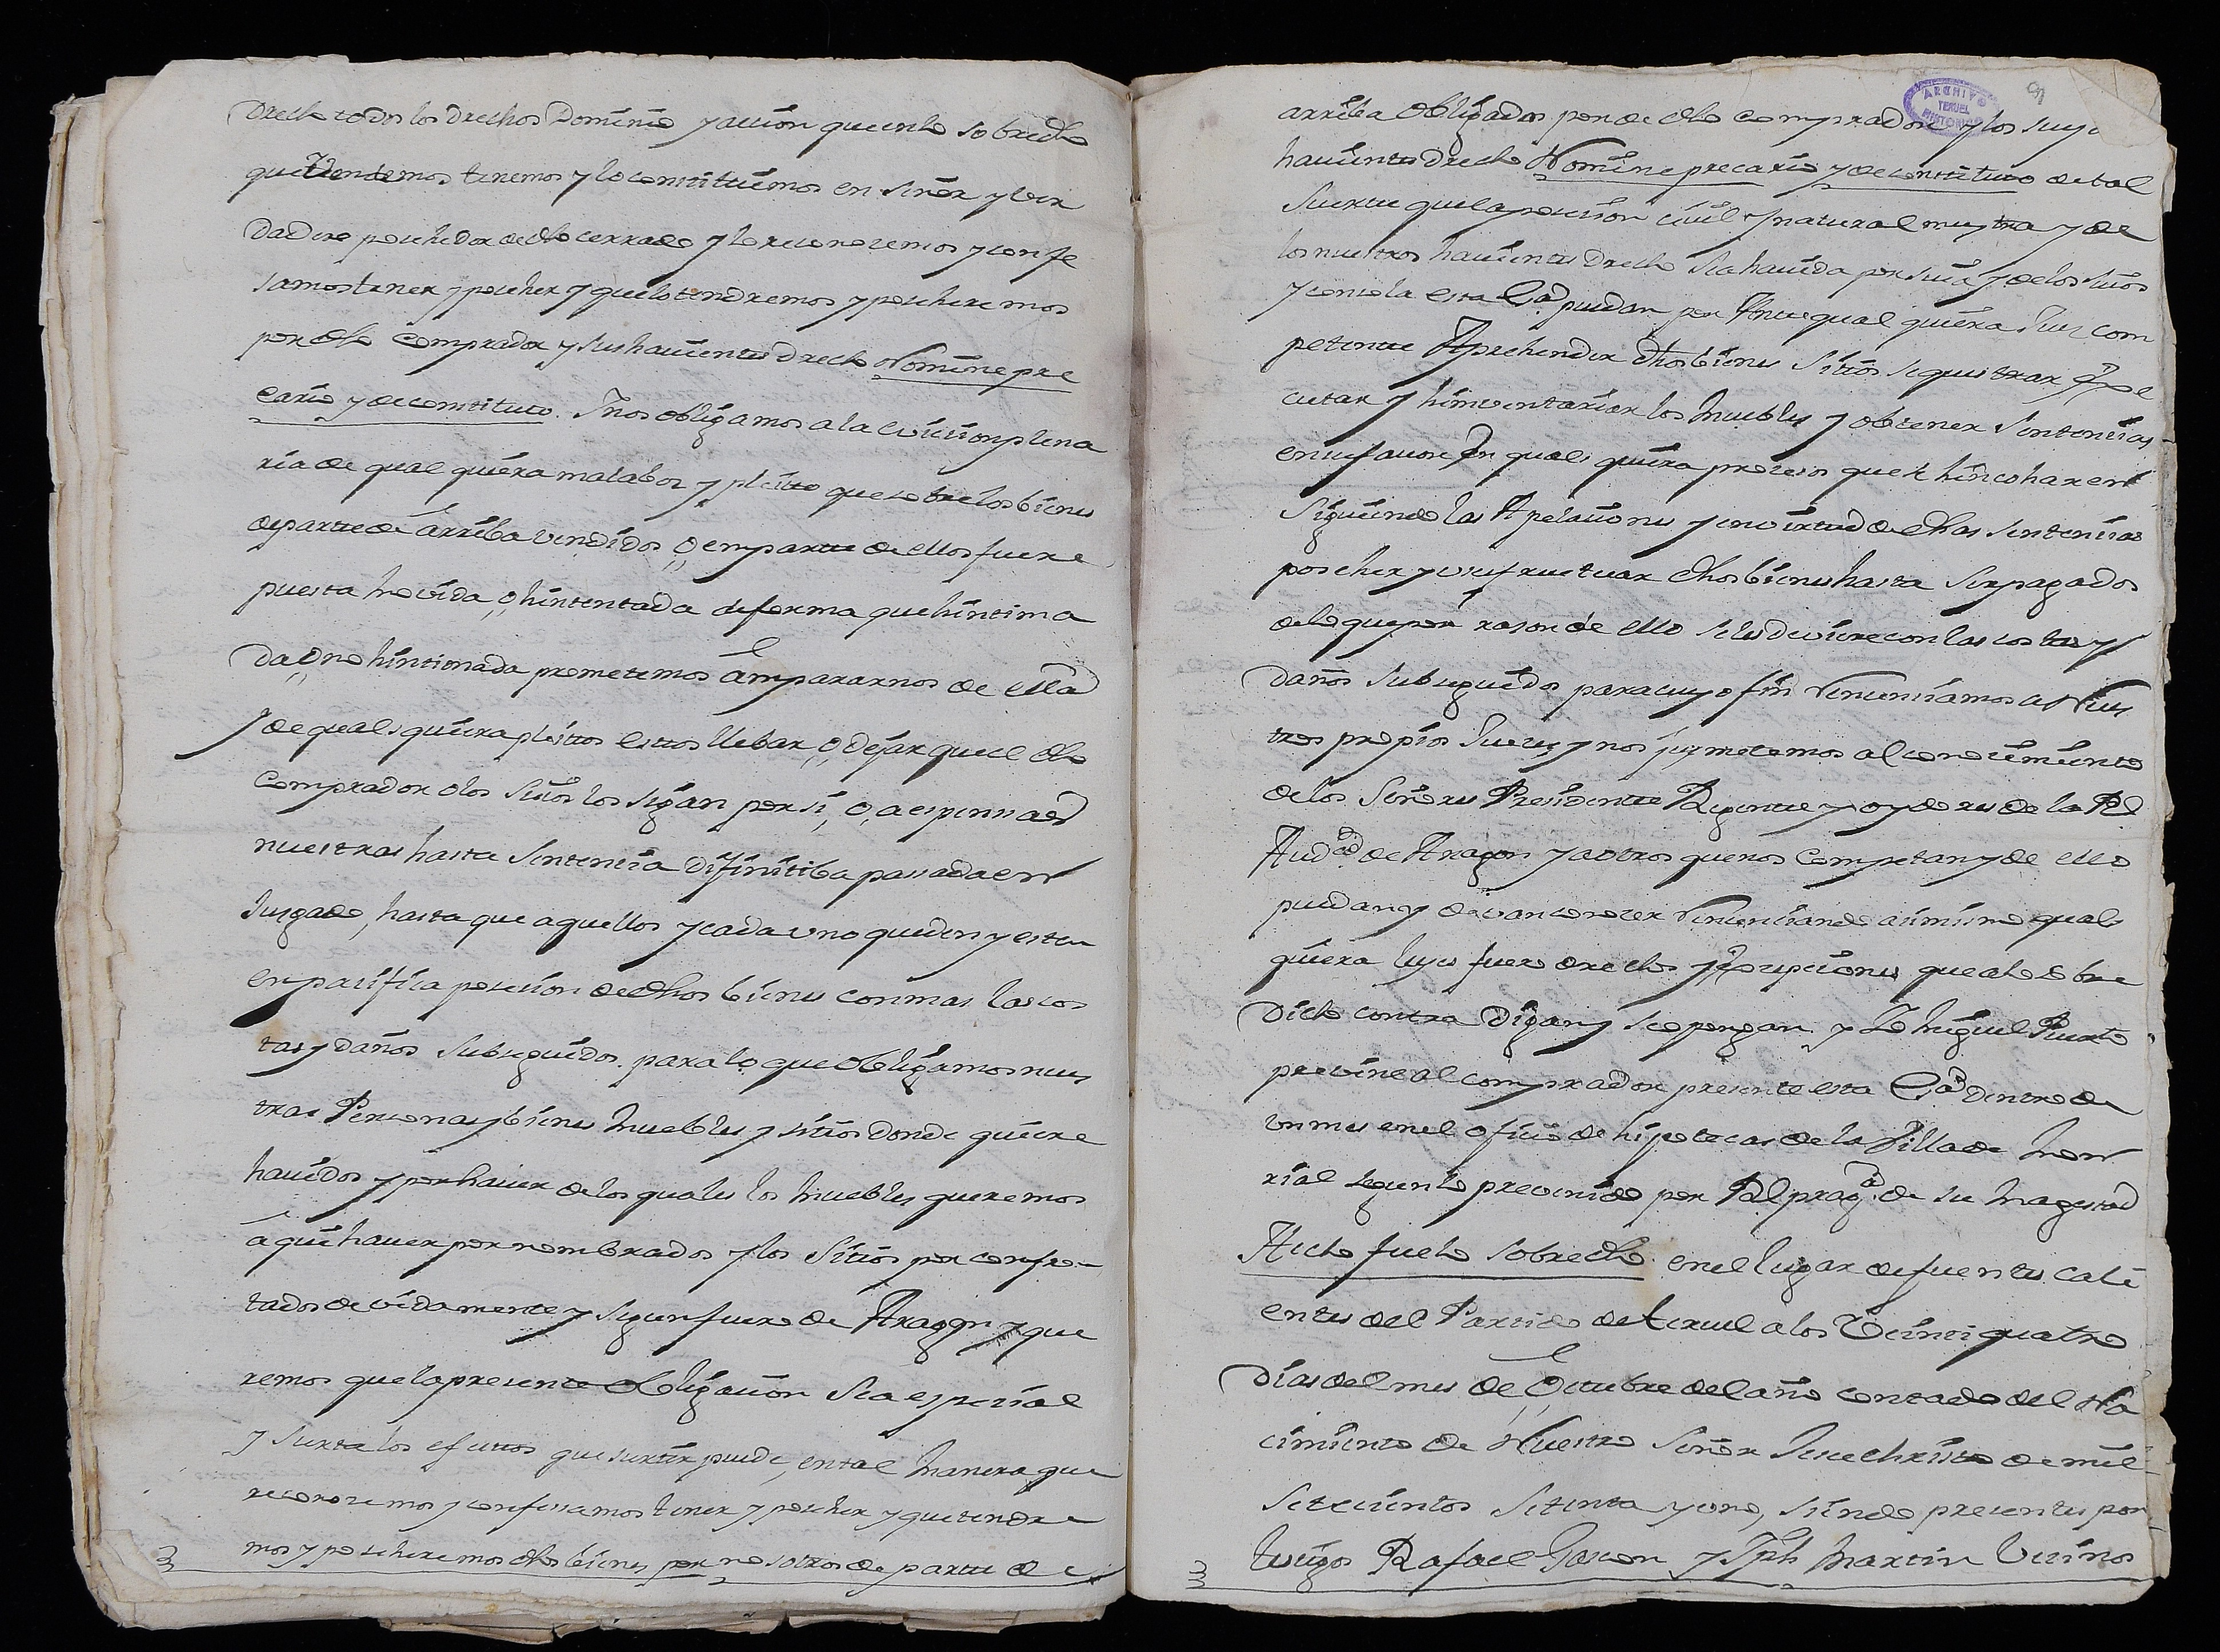 Drecho todos los Drechos Dominio y accion que en lo sobredho
que Vendemos tenemos y lo constituimos en Señor y ver
dadero posehedor de dho cerrado y lo reconocemos y confe
samos tener y poseher y que lo tendremos y poseheremos
por dho Comprador y sus havientes Drecho Nomine pre
cario y de constituto. Y nos obligamos a la eviccion plena
ria de qual quiera malaboz y pleitto que sobre los bienes
de parte de arriba vendidos, o, en partte de ellos fuere
puesta movida, o, hintentada de forma que hintima
da, o, no hintimada prometemos ampararnos de ella
y de quales quiera pleittos esttos llebar, o, dejar que el dho
Comprador o los suios los sigan por si, o, a espensas
nuestras hasta Sentencia difinitiba passada en
Juzgado, hasta que aquellos y cada uno queden y esten
en pacifica posesion de dhos bienes con mas las cos
tas y daños subseguidos. para lo que obligamos nues
tras Personas y bienes muebles y sitios donde quiere
havidos y por haver de los quales los muebles queremos
aqui haver por nombrados y los Sitios por confron
tados devidamente y segun fuero de Aragon y que
remos que la presente obligacion sea especial
y surta los efecttos que surtir puede, en tal manera que
reconocemos y confessamos tener y poseher y que tendre
mos y poseheremos dhos bienes por nosotros de partte de
arriba obligados por de dho comprador y los suyos
havientes drecho Nomine precario y de constituto de tal
Suertte que la posesion civil y natural nuestra y de
los nuestros havientes Drecho sea havida por suia y de los suios
y con sola esta Essra puedan por Antte qual quiera Juez com
petentte Aprehender dhos bienes Sitios sequestrar Exe
cutar y himventariar los muebles y obtener Sentencias
en su favor En quales quiera procesos que se hincoharen
Siguiendo las Apelaciones y en virtud de dhas Sentencias
poseher y usufructuar dhos bienes hasta ser pagados
de lo que por rason de ello se les deviere con las costas y
daños subseguidos para cuyo fin Renunciamos a Nues
tros propios Jueces y nos jusmetemos al conocimiento
de los Señores Presidentte Regentte y oydores de la Rl
Audcia de Aragon y a otros que nos Competan y de ello
puedan y devan conocer Renunciando asimismo quales
quiera leyes fuero drechos y Excepciones que a lo sobre
Dicho contra digan y se opongan. y Yo Miguel Puerto
previne al comprador presente esta Essra dentro de
un mes en el oficio de hipotecas de la Villa de Mon
rial segun lo prevenido por Rl pragca de su Magestad
Hecho fue lo sobredho. en el lugar de fuentes cali
entes del Partido de teruel a los Veinti quatro
Dias del mes de Octubre del año contado del Na
cimiento de Nuestro Señor Jesuchristo de mil
Setecientos Setenta y uno, siendo presentes por
testigos Rafael Gascon y Jph Martin Vecinos
ARCHIVO
TERUEL
HISTORICO